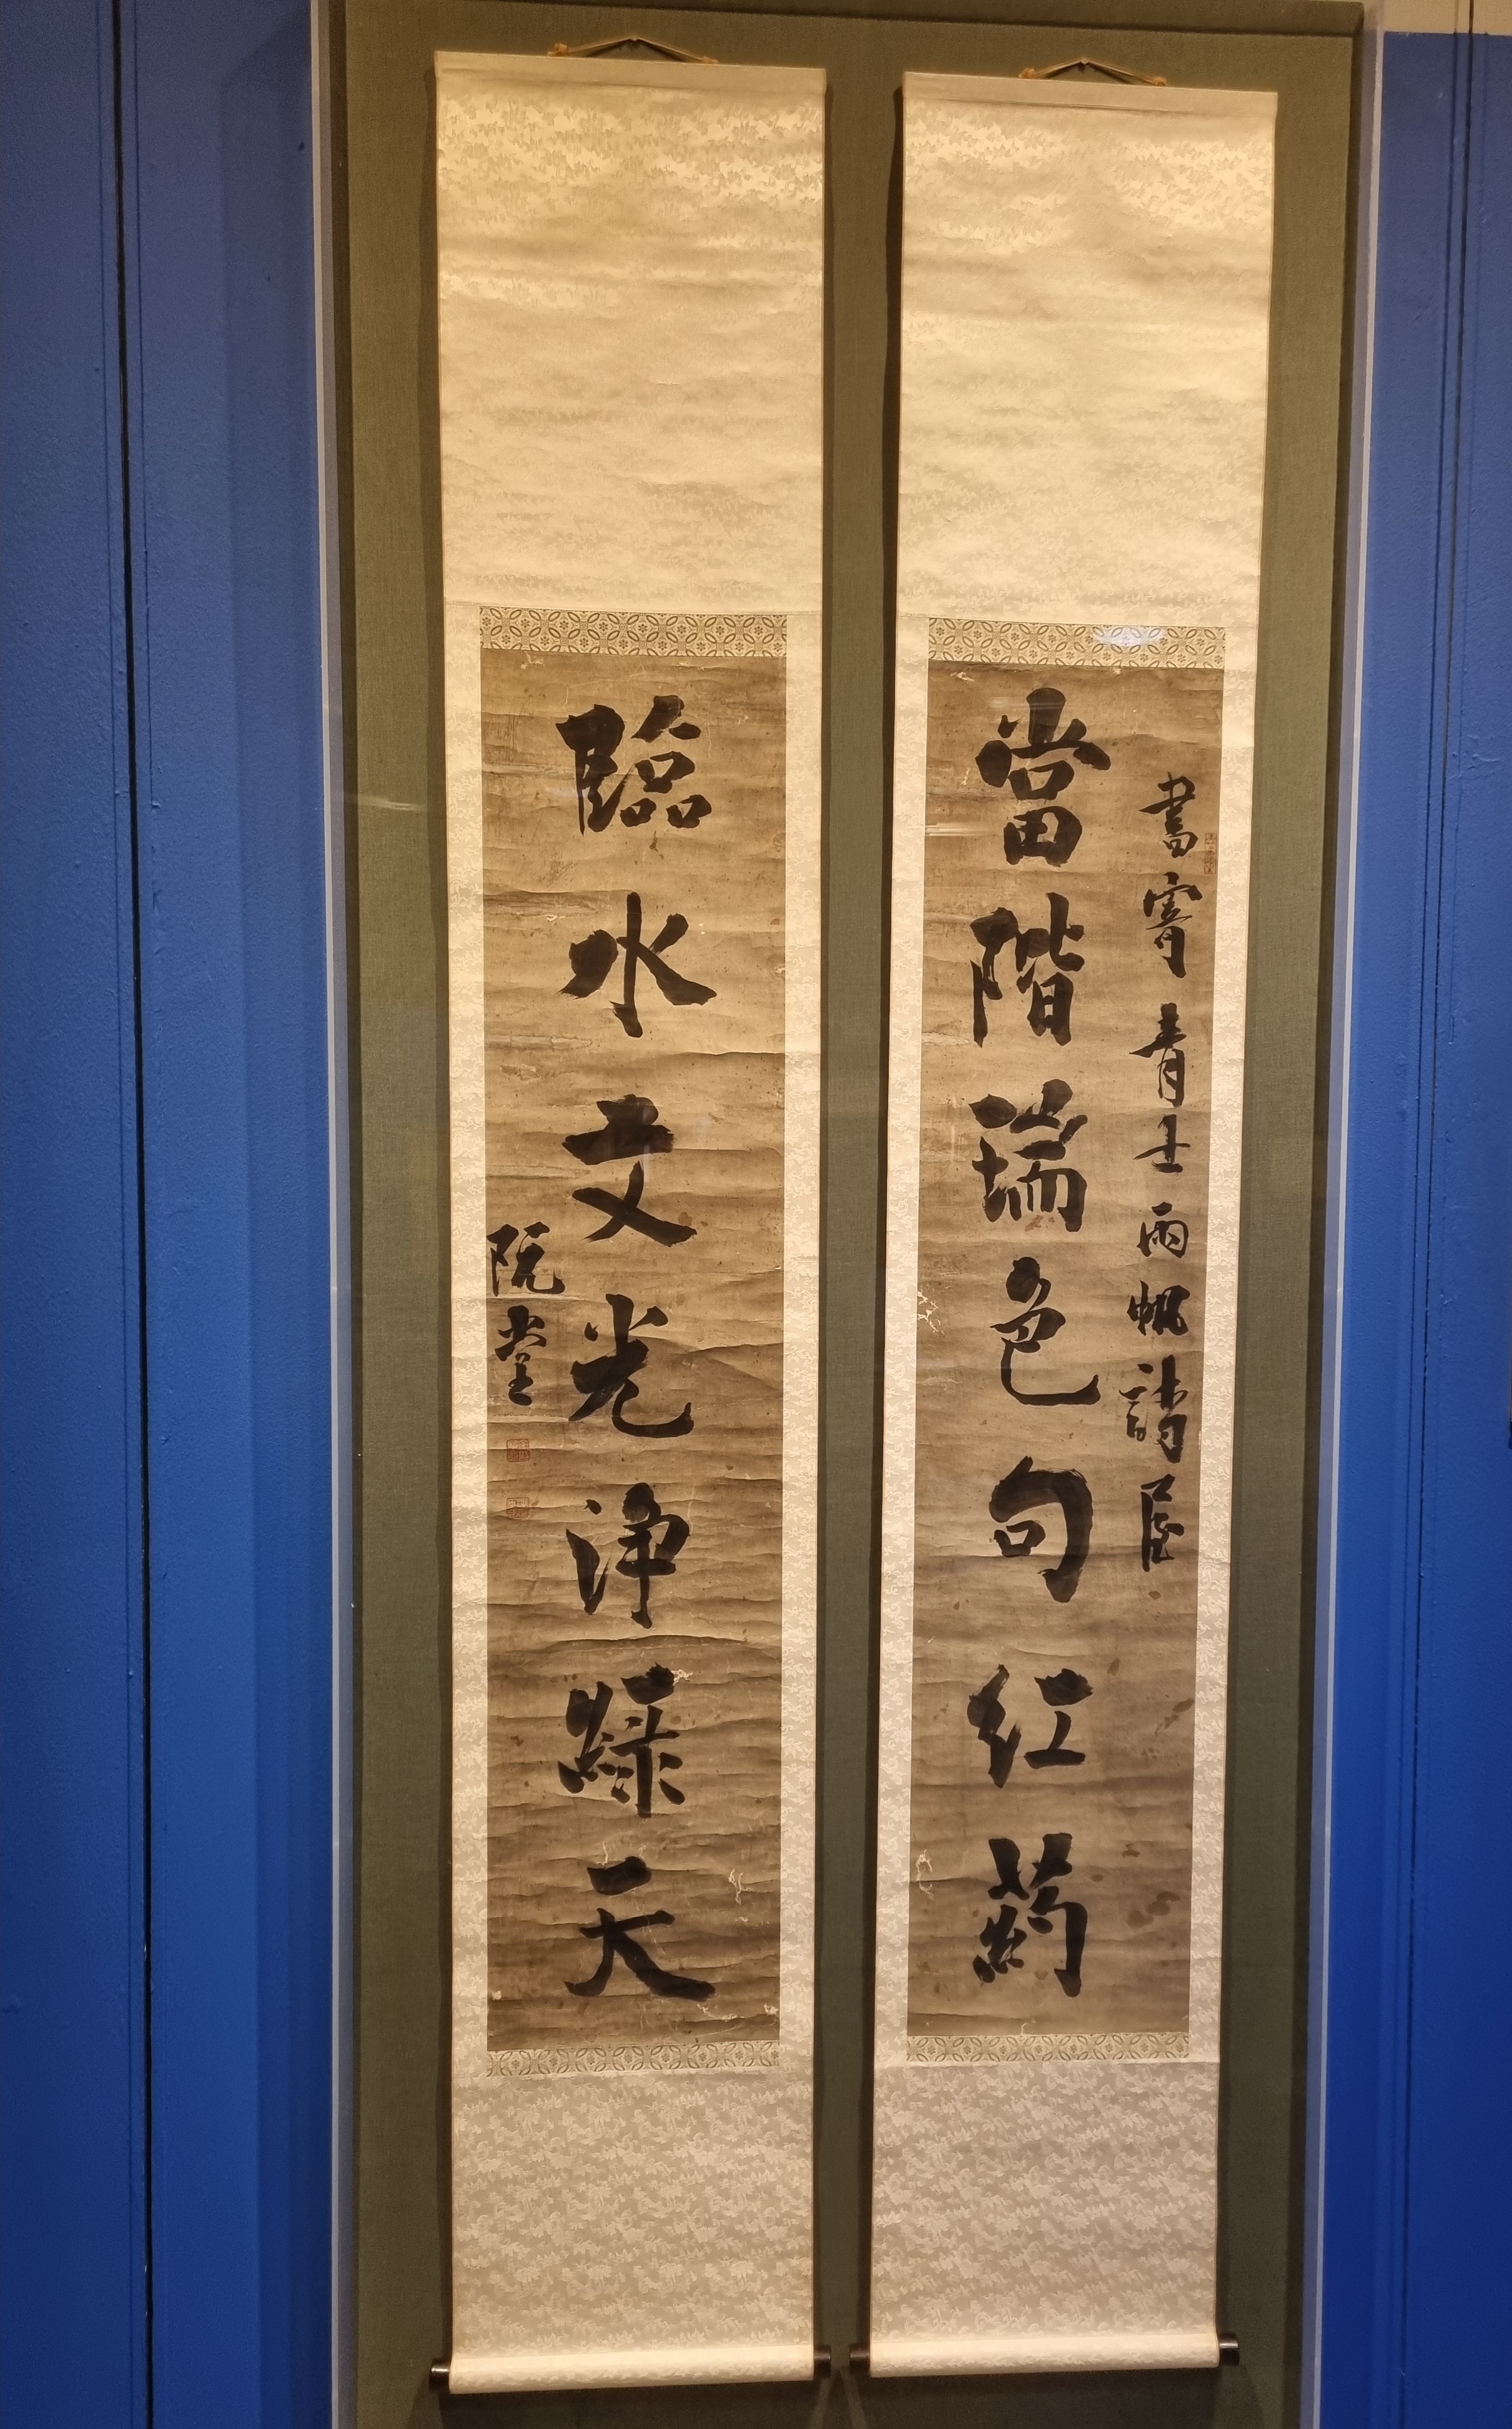 書寄青士雨帆請屈
當階瑞色句紅葯
臨水文光淨綠天
阮堂